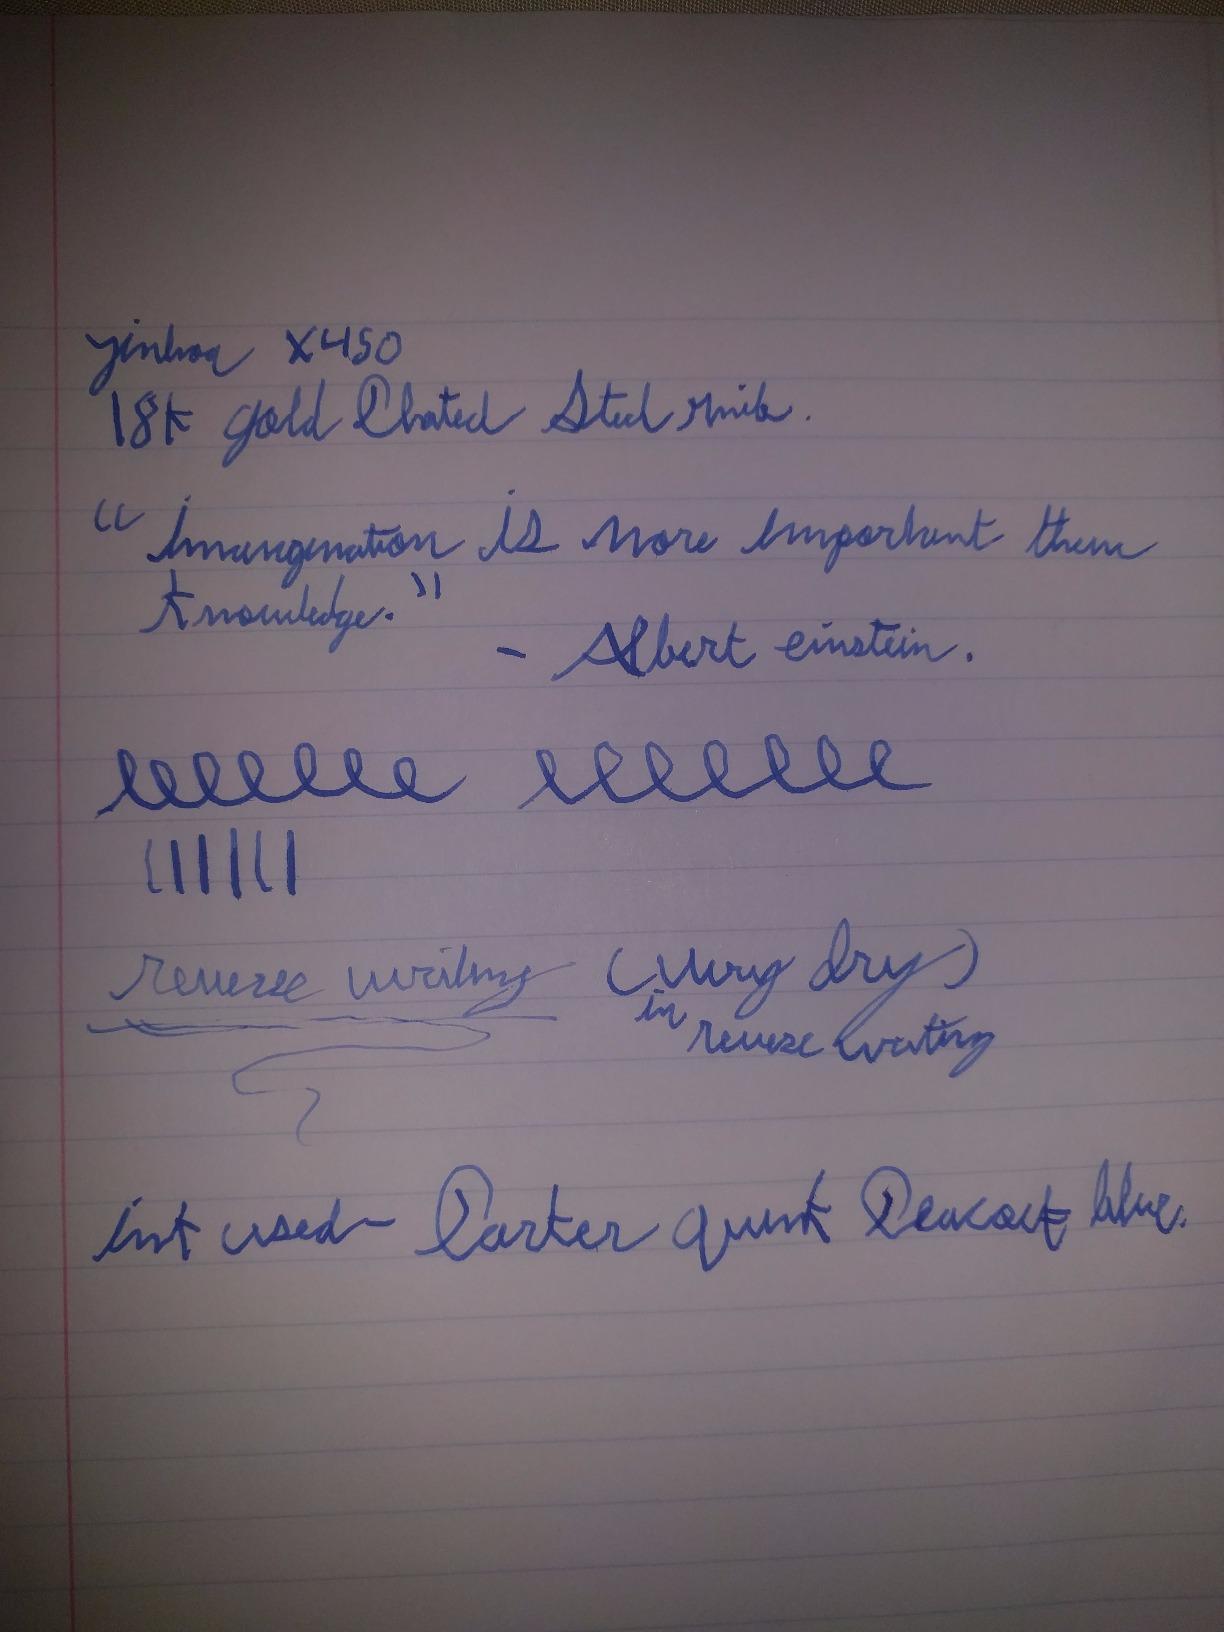 yinhoa X450
18k gold Plated Steel nib.
"Immangenation is more important then
knowledge."
- Albert einstein.
reverse writing (very dry)
in reverse writing
ink used - Parker quink Peacock blue.